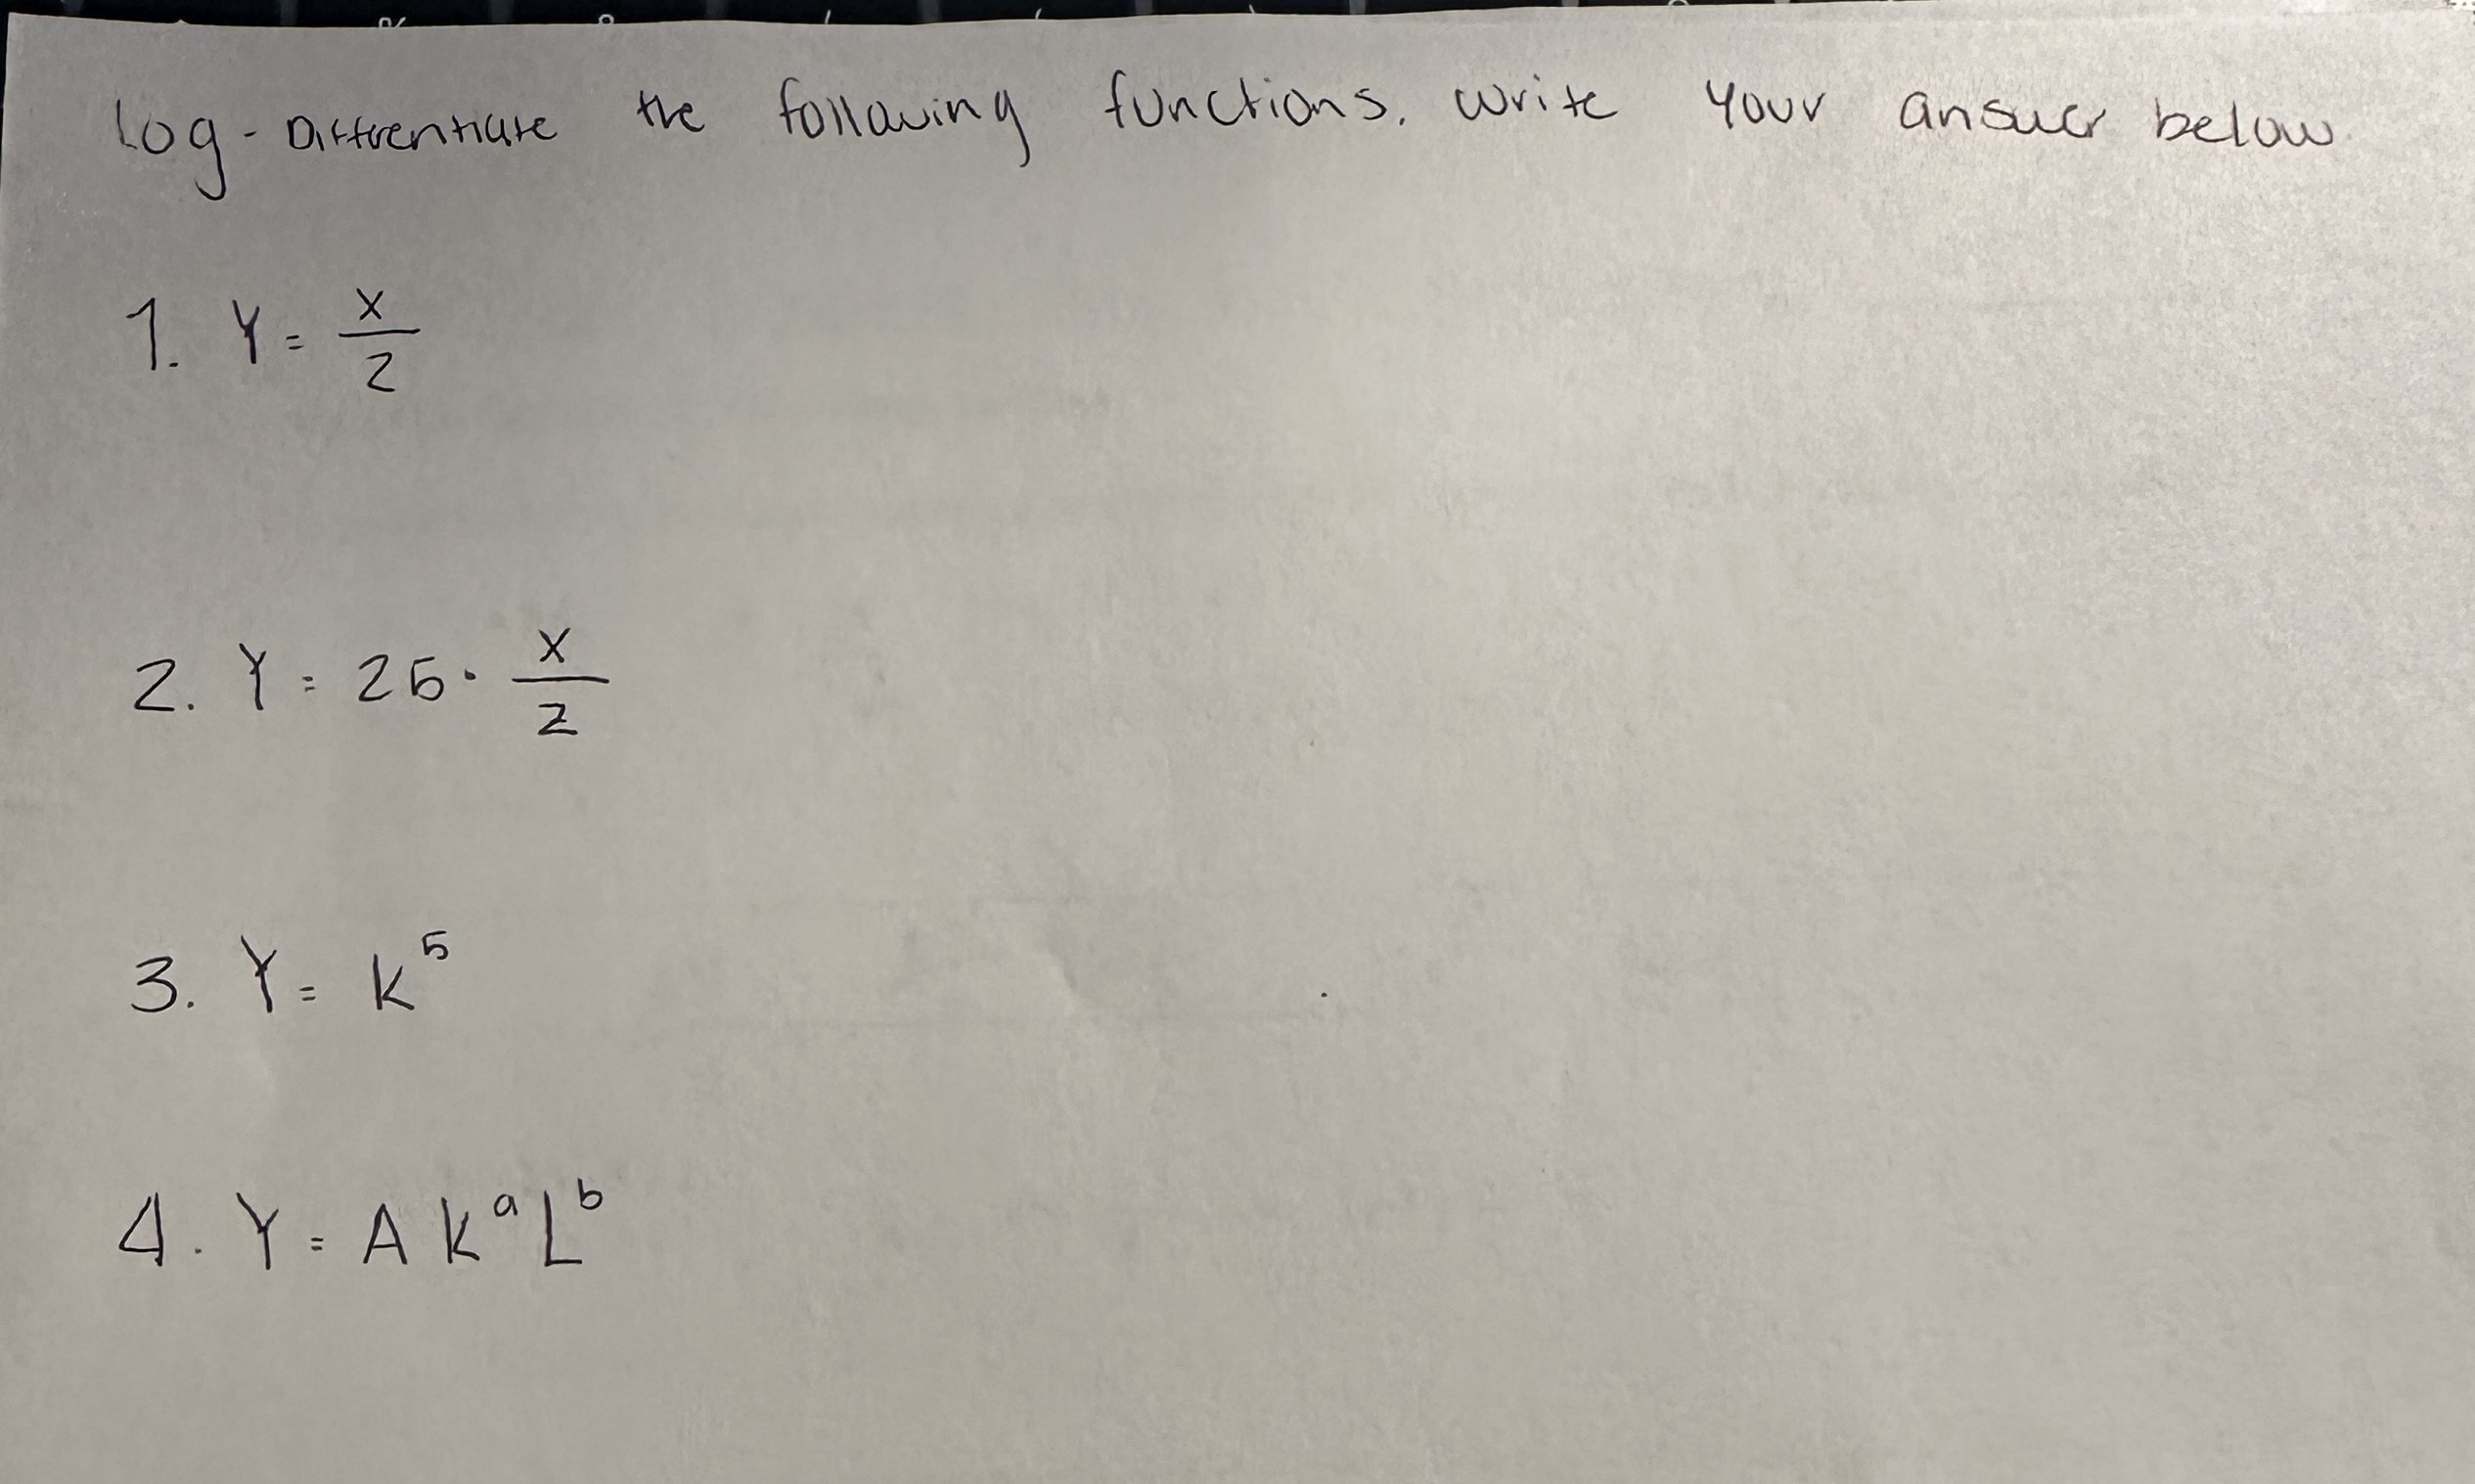 Log-Differentiate the following functions. Write your answer below.
1. Y = x/2
2. Y = 25 · x/z
3. Y = K^5
4. Y = A K^a L^b